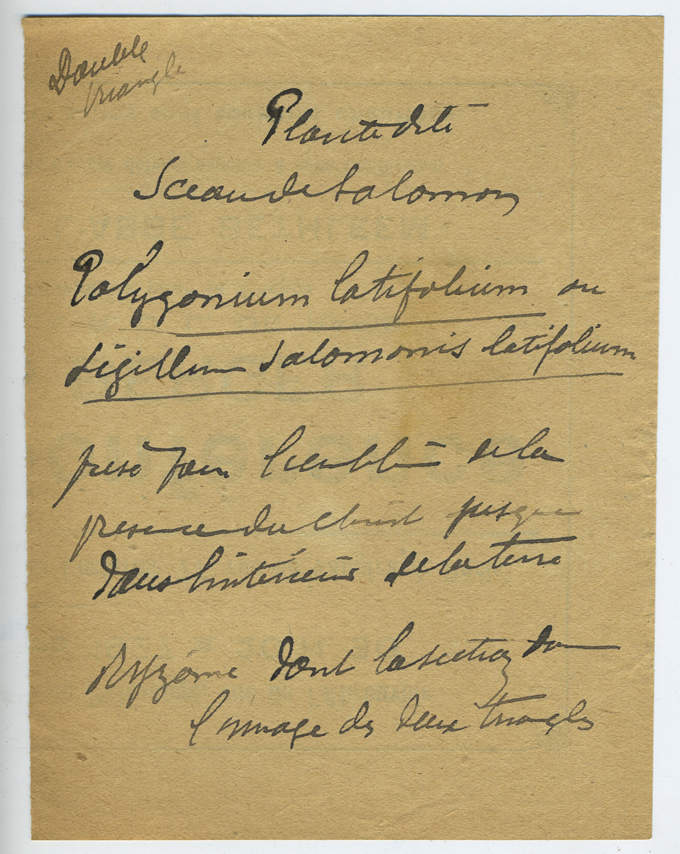 Double
triangle
Plante dite
Sceau de Salomon
Polygonium latifolium ou
Sigillum Salomonis latifolium
pris pour l'emblème de la
presence du Christ jusque
dans l'interieur de la terre
Ryzome dont la section donne
l'image des deux triangles